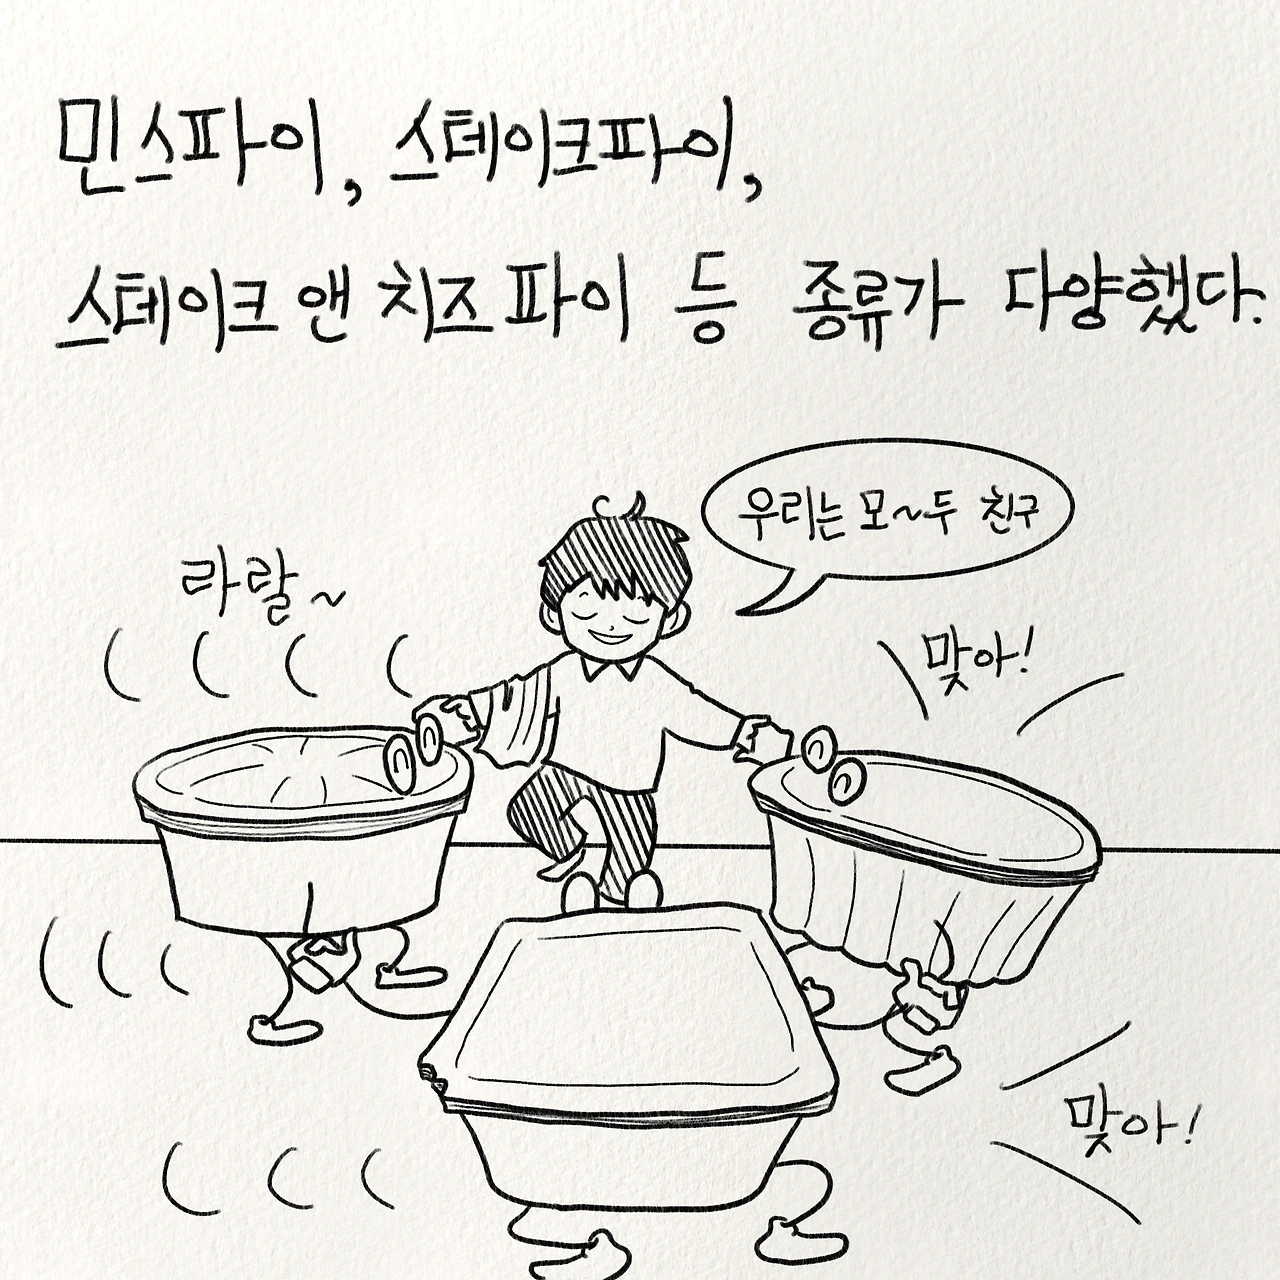 민스파이, 스테이크파이,
스테이크 앤 치즈 파이 등 종류가 다양했다.
우리는 모~두 친구
라랄~
맞아!
맞아!